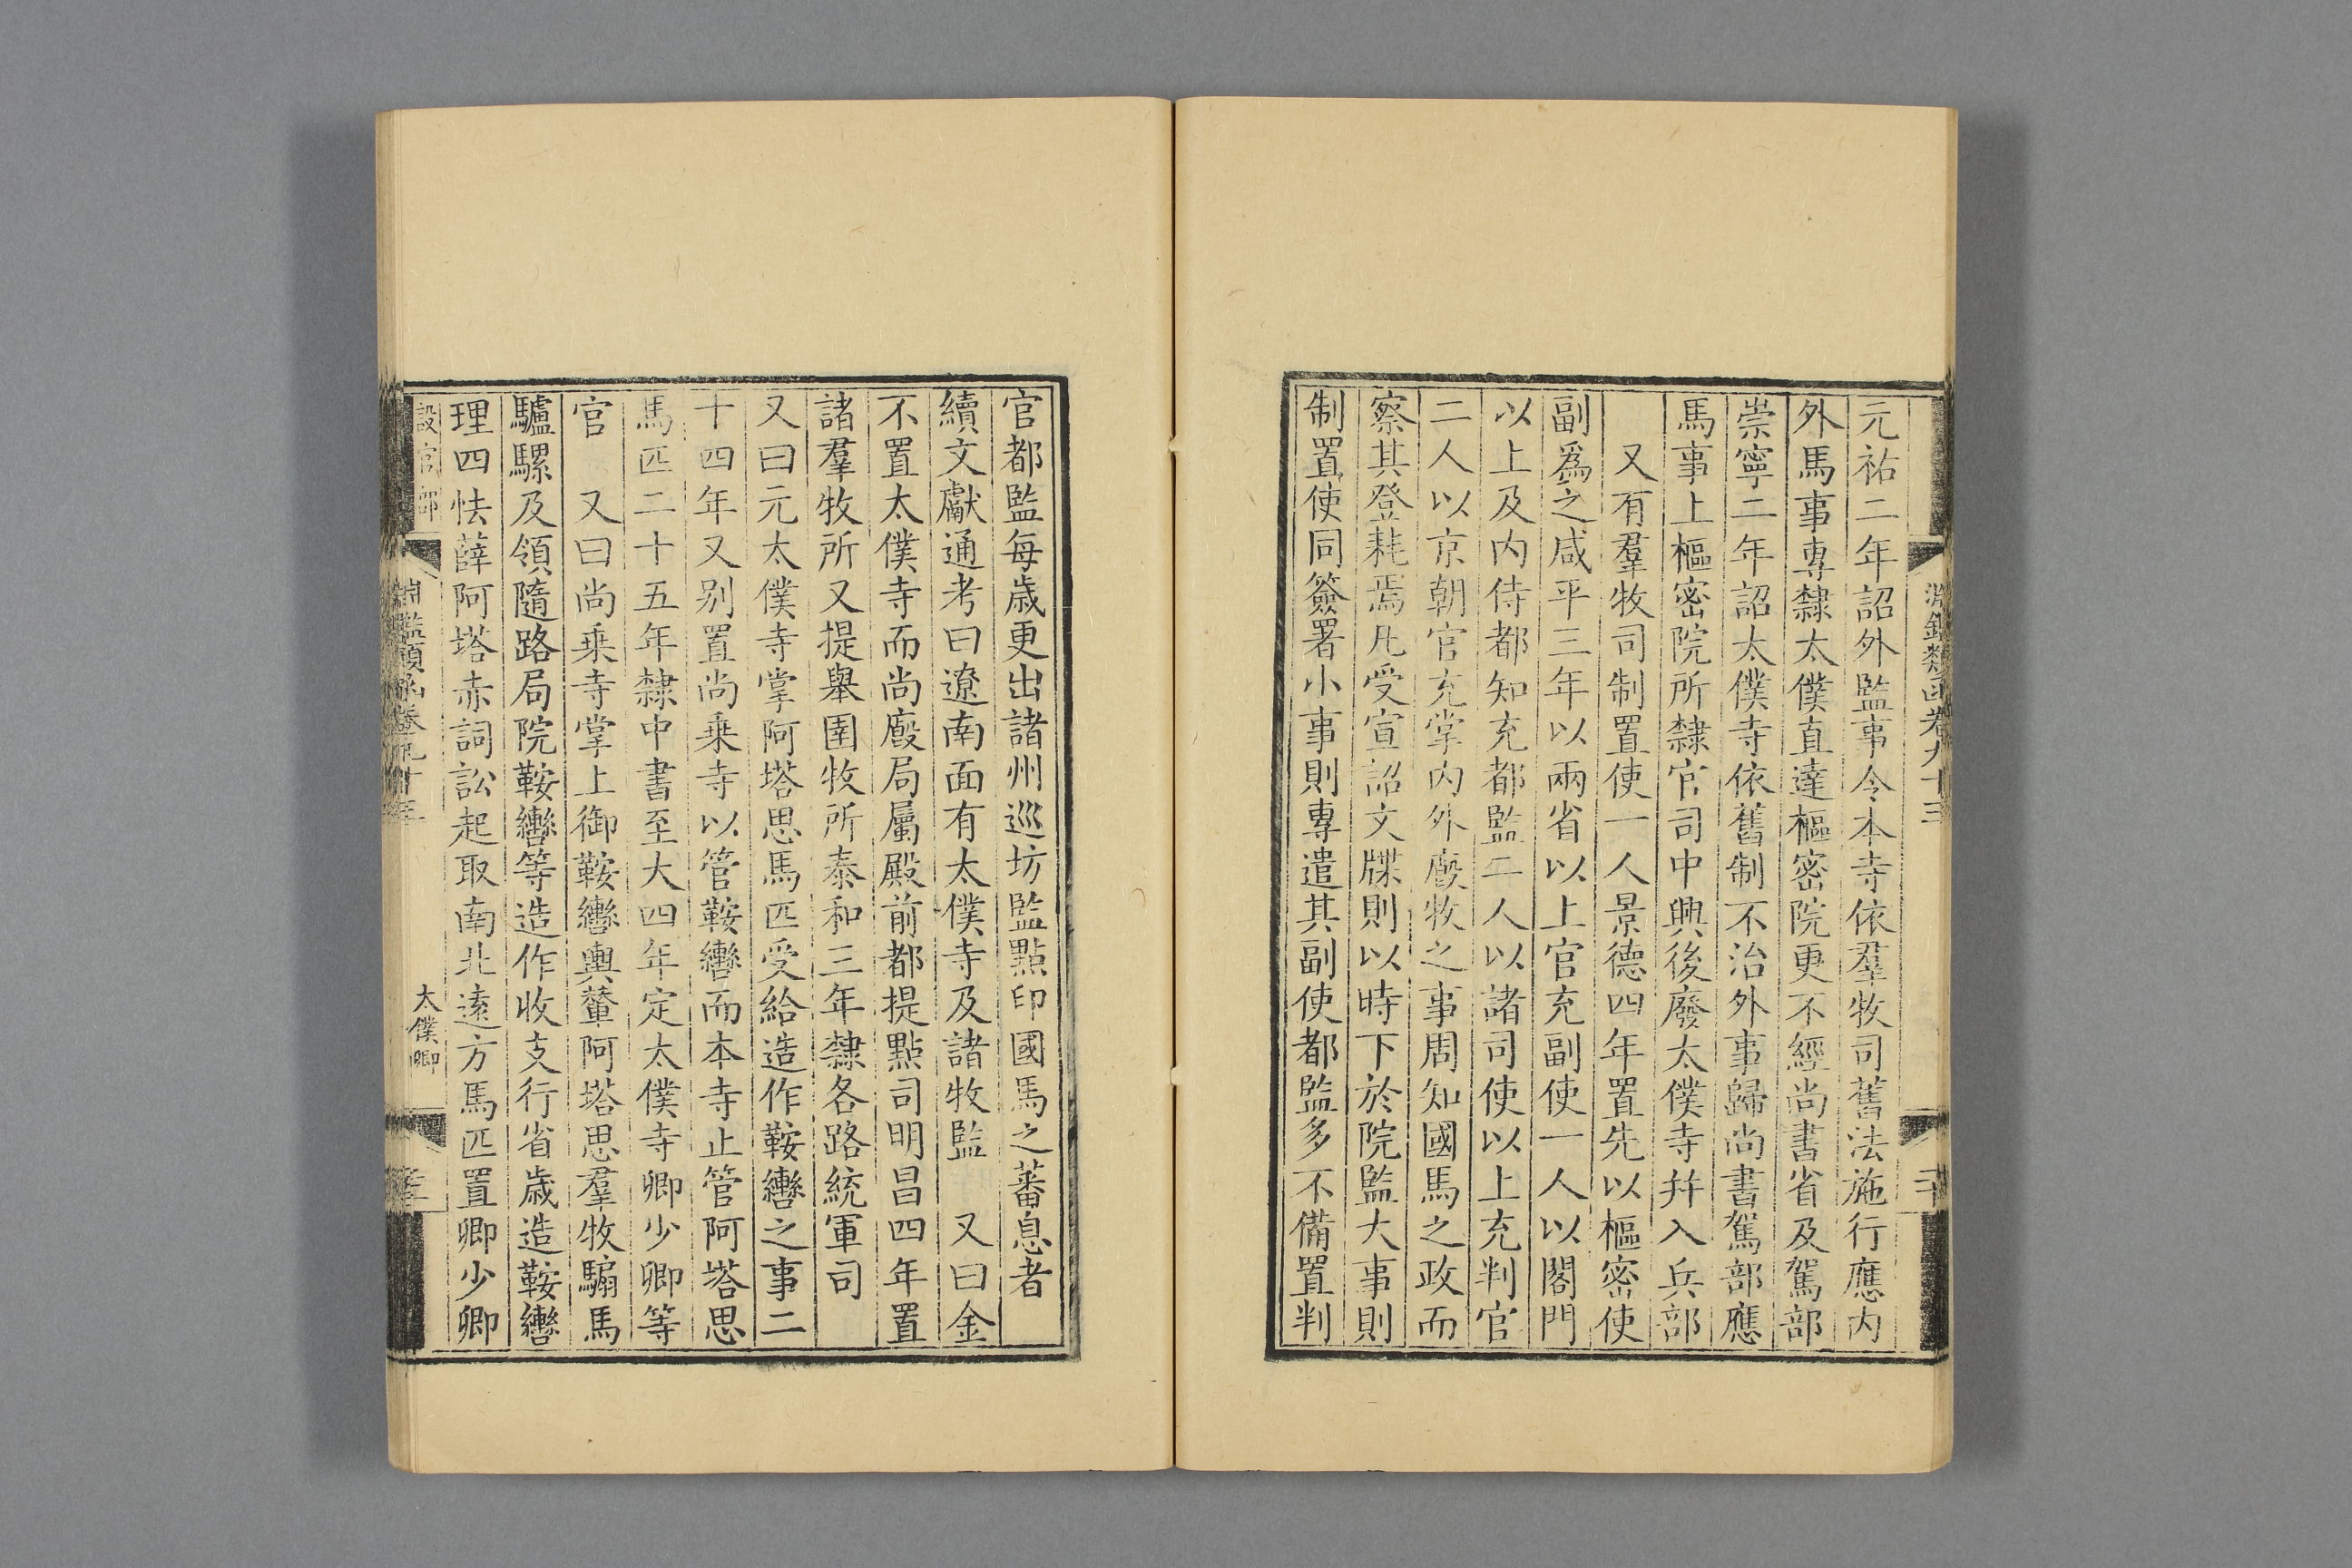 淵鑑類函卷九十三
元祐二年詔外監事令本寺依羣牧司舊法施行應内
外馬事專隸太僕直達樞密院更不經尚書省及駕部
崇寧二年詔太僕寺依舊制不治外事歸尚書駕部應
馬事上樞密院所隸官司中興後廢太僕寺并入兵部
又有羣牧司制置使一人景德四年置先以樞密使
副爲之咸平三年以兩省以上官充副使一人以閤門
以上及内侍都知充都監二人以諸司使以上充判官
二人以京朝官充掌内外廐牧之事周知國馬之政而
察其登耗焉凡受宣詔文牒則以時下於院監大事則
制置使同簽署小事則專遣其副使都監多不備置判
官都監每歲更出諸州巡坊監點印國馬之蕃息者
續文獻通考曰遼南面有太僕寺及諸牧監　又曰金
不置太僕寺而尚廐局屬殿前都提點司明昌四年置
諸羣牧所又提舉圉牧所泰和三年隸各路統軍司
又曰元太僕寺掌阿塔思馬匹受給造作鞍轡之事二
十四年又别置尚乗寺以管鞍轡而本寺止管阿塔思
馬匹二十五年隸中書至大四年定太僕寺卿少卿等
官　又曰尚乗寺掌上御鞍轡輿輦阿塔思羣牧騸馬
驢騾及領隨路局院鞍轡等造作收支行省歲造鞍轡
理四怯薛阿塔赤詞訟起取南北遠方馬匹置卿少卿
設官部
淵鑑類函卷九十三
太僕卿